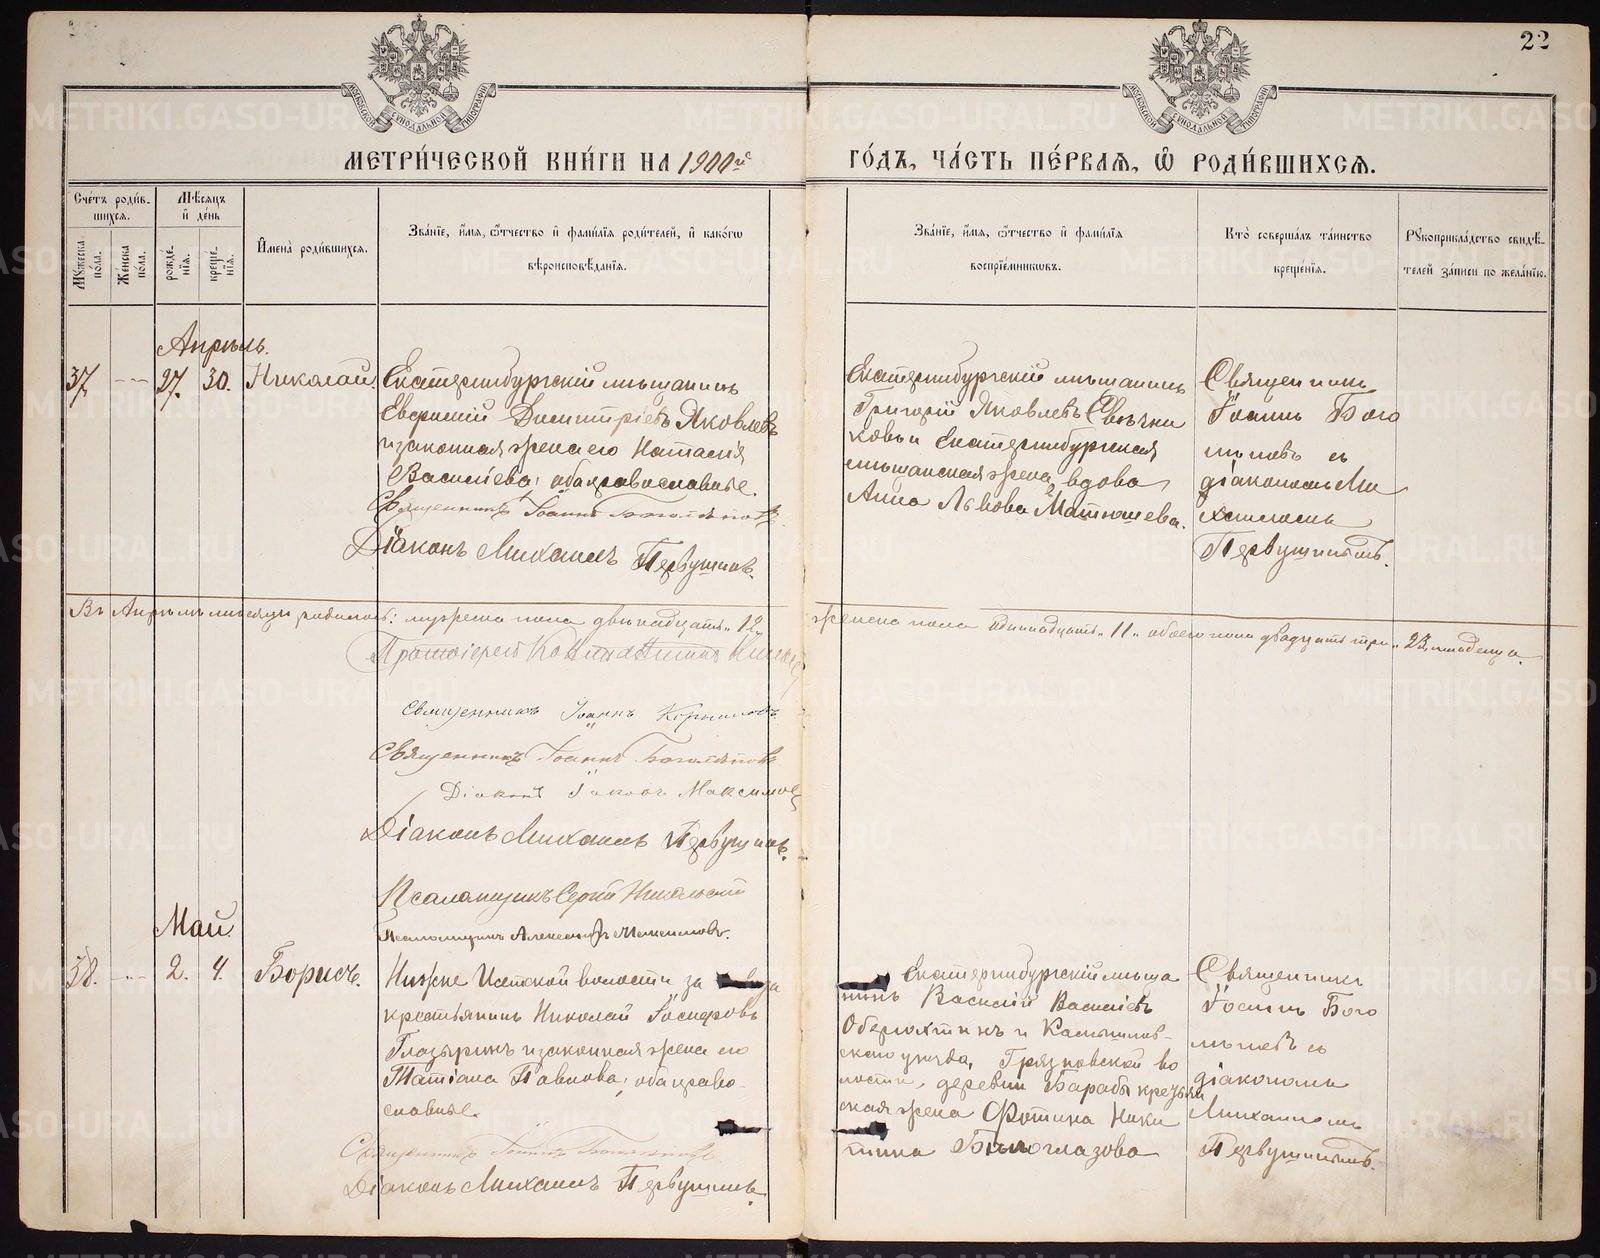 22
МОСКОВСКОЙ СѴНОДАЛЬНОЙ ТИПОГРАФІИ
МОСКОВСКОЙ СѴНОДАЛЬНОЙ ТИПОГРАФІИ
МЕТРИ́ЧЕСКОЙ КНИ́ГИ НА 1900й
ГО́ДЪ, ЧА́СТЬ ПЕ́РВАѦ, Ѡ РОДИ́ВШИХСѦ.
Сче́тъ роди́в-
шихсѧ.
Мꙋ́жеска по́ла.
Же́нска по́ла.
Мѣ́сѧцъ
и҆ де́нь
рожде́-
нїѧ.
креще́-
нїѧ.
И҆мена̀ роди́вшихсѧ.
Зва́нїе, и҆́мѧ, ѻ҆́тчество и҆ фами́лїѧ роди́телей, и҆ како́гѡ
вѣроисповѣ́данїѧ.
Зва́нїе, и҆́мѧ, ѻ҆́тчество и҆ фами́лїѧ
воспрїе́мникѡвъ.
Кто̀ соверша́лъ та́инство
креще́нїѧ.
Рꙋкоприкла́дство свидѣ́-
телей за́писи по жела́нїю.
Апрѣль.
37
27.
30.
Николай.
Екатеринбургскій мѣщанинъ
Дмитріевъ Яковлевъ
и законная жена его
Васильева, оба православные.
Священникъ Іоаннъ Боголѣповъ
Діаконъ Михаилъ Первушинъ.
Екатеринбургскій мѣщанинъ
Григорій Яковлевъ Свѣчни
ковъ и Екатеринбургская
мѣщанская жена, вдова
Анна Львова Матюшева.
Священникъ
Іоаннъ Бого
лѣповъ съ
діакономъ Ми
хаиломъ
Первушинымъ.
Въ Апрѣлѣ мѣсяцѣ родилось: мужеска пола двѣнадцать „12„
женска пола одиннадцать „11„ обоего пола двадцать три „23„ младенца.
Протоіерей Константинъ
Священникъ Іоаннъ Корниловъ
Священникъ Іоаннъ Боголѣповъ
Діаконъ Іаковъ Максимовъ
Діаконъ Михаилъ Первушинъ.
Псаломщикъ Сергій Никольскій
Псаломщикъ Александръ Максимовъ.
Май.
38.
2.
4.
Борисъ.
Нижне Исетской волости за
крестьянинъ Николай Іосифовъ
Глазыринъ и законная жена его
Татіана Павлова, оба право-
славные.
Священникъ Іоаннъ Боголѣповъ.
Діаконъ Михаилъ Первушинъ.
Екатеринбургскій мѣща
нинъ Василій Васильевъ
Оберюхтинъ и Камышлов-
скаго уѣзда, Грязновской во
лости, деревни Барабы крестьян
ская жена Фотина Ники
тина Бѣлоглазова
Священникъ
Іоаннъ Бого
лѣповъ съ
діакономъ
Михаиломъ
Первушинымъ.
METRIKI.GASO-URAL.RU